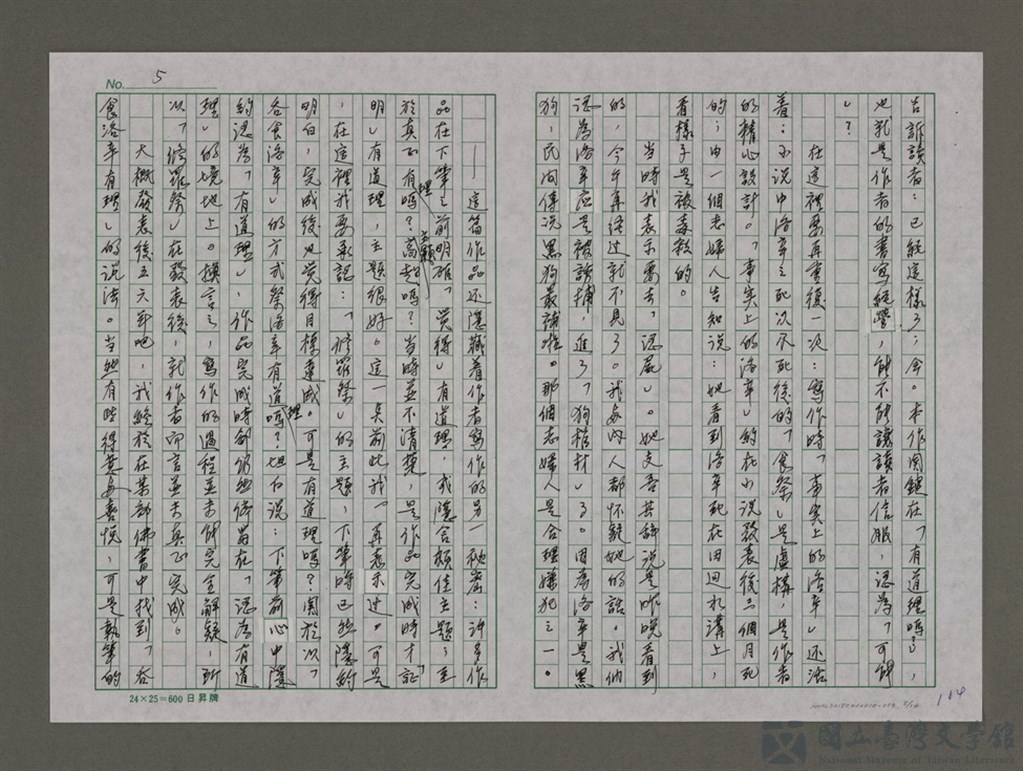 No. 5
告訴讀者：已經這樣了；合。本作關鍵在「有道理嗎？」，
也就是作者的書寫經營，能不能讓讀者信服，認為「可能
」？
在這裡要再重複一次：寫作時「事實上的洛辛」還活
著；小說中洛辛之死以及死後的「食祭」是虛構，是作者
的精心設計。「事實上的洛辛」約在小說發表後三個月死
的；由一個老婦人告知說：她看到洛辛死在田間水溝上，
看樣子是被毒殺的。
當時我表示要去「認屍」。她支吾其辭說是昨晚看到
的，今午再經過就不見了。我處內人都懷疑她的話。我們
認為洛辛應是被誘捕，進了「狗棺材」了。因為洛辛是黑
狗，民間傳說黑狗最補啦。那個老婦人是合理嫌犯之一。
——這篇作品还隱藏着作者寫作的另一秘密：許多作
品在下筆之前明確「覺得」有道理，或隱含頗佳主題；至
於真正有理嗎？主題高超嗎？當時並不清楚，是作品完成時才「証
明」有道理，主題很好。這一点前此我一再表示过。可是
，在這裡我要承認：「修羅祭」的主題，下筆時已然隱約
明白，完成後也覺得目標達成。可是有道理嗎？關於以「
吞食洛辛」的方式祭洛辛有道理嗎？坦白說：下筆前心中隱
約認為「有道理」，作品完成時卻仍然停留在「認為有道
理」的境地上。換言之，寫作的過程並未能完全解疑，所
以「修羅祭」在發表後，就作者而言並未真正完成。
大概發表後五六年吧，我終於在某部佛書中找到「吞
食洛辛有理」的說法。當然有些得意與喜悅，可是執筆的
24×25=600 日昇牌
104
國立臺灣文學館
National Museum of Taiwan Literature